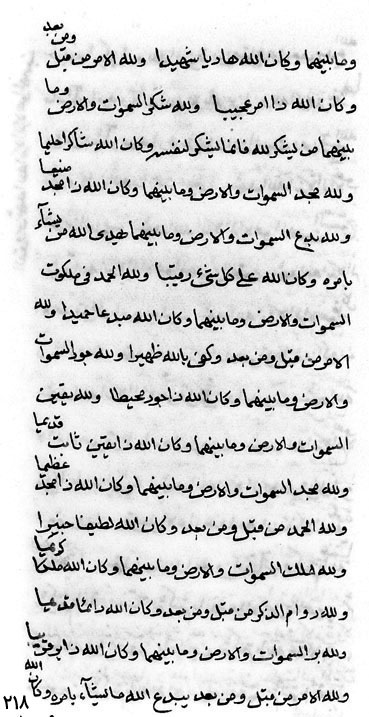 وما بينهما وكان الله هاديا شهيدا ولله الامر من قبل ومن بعد
وكان الله ذا امر عجيبا ولله شكر السموات والارض وما
بينهما من يشكر لله فانما ليشكر لنفسه وكان الله شاكرا حليما
ولله مجد السموات والارض وما بينهما وكان الله ذا مجد منيعا
ولله بدع السموات والارض وما بينهما يهدى الله من يشآء
بامره وكان الله على كل شىء رقيبا ولله الحمد فى ملكوت
السموات والارض وما بينهما وكان الله مبدعا حميدا ولله
الامر من قبل ومن بعد وكفى بالله ظهيرا ولله جود السموات
والارض وما بينهما وكان الله ذا جود محيطا ولله يقين
السموات والارض وما بينهما وكان الله ذا يقين ثابت قديما
ولله مجد السموات والارض وما بينهما وكان الله ذا مجد عظيما
ولله الحمد من قبل ومن بعد وكان الله لطيفا خبيرا
ولله ملك السموات والارض وما بينهما وكان الله ملكا كريما
ولله دوام الذكر من قبل ومن بعد وكان الله دائما قديما
ولله بر السموات والارض وما بينهما وكان الله ذا بر
ولله الامر من قبل ومن بعد يبدع الله ما يشآء بامره وكان الله
٢١٨